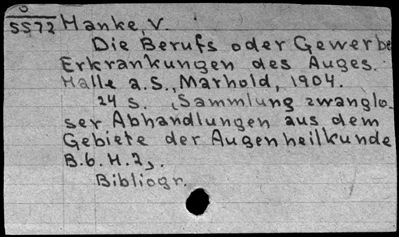 O
5572 Hanke, V.
Die Berufs oder Gewerbe
Erkrankungen des Auges.
Halle a.S., Marhold, 1904.
24 S. (Sammlung zwanglo-
ser Abhandlungen aus dem
Gebiete der Augenheilkunde
B.6. H.2).
Bibliogr.